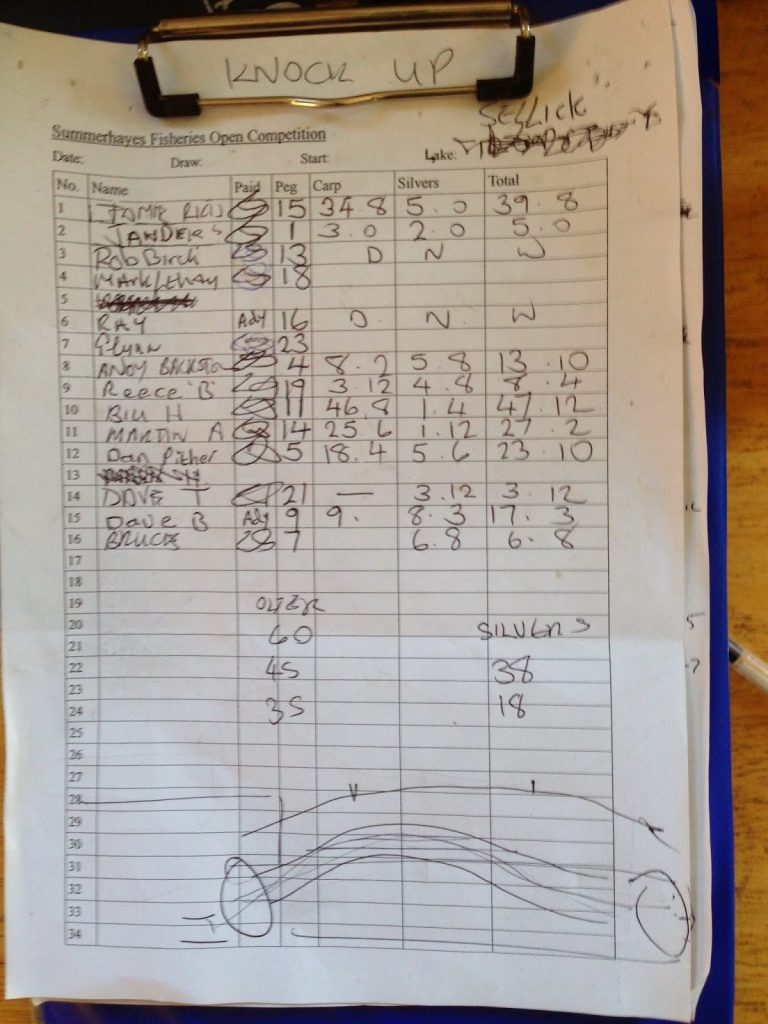 KNOCK UP
SELLICK
Summerhayes Fisheries Open Competition
Date: Draw: Start: Lake:
No. Name Paid Peg Carp Silvers Total
1 15 34.8 5.0 39.8
2 JANDERS 1 3.0 2.0 5.0
3 Rob Birch 13 D N W
4 Mark 18
5
6 RAY Ady 16 D. N. W
7 Glynn 23
8 ANDY 4 8.2 5.8 13.10
9 Reece B 19 3.12 4.8 8.4
10 Bill H 11 46.8 1.4 47.12
11 MARTIN A 14 25.6 1.12 27.2
12 Dan Pither 5 18.4 5.6 23.10
13
14 DAVE T 21 — 3.12 3.12
15 Dave B Ady 9 9. 8.3 17.3
16 BRUCE 7 6.8 6.8
17
18
19 OVER
20 60 SILVERS
21
22 45 38
23
24 35 18
25
26
27
28
29
30
31
32
33
34